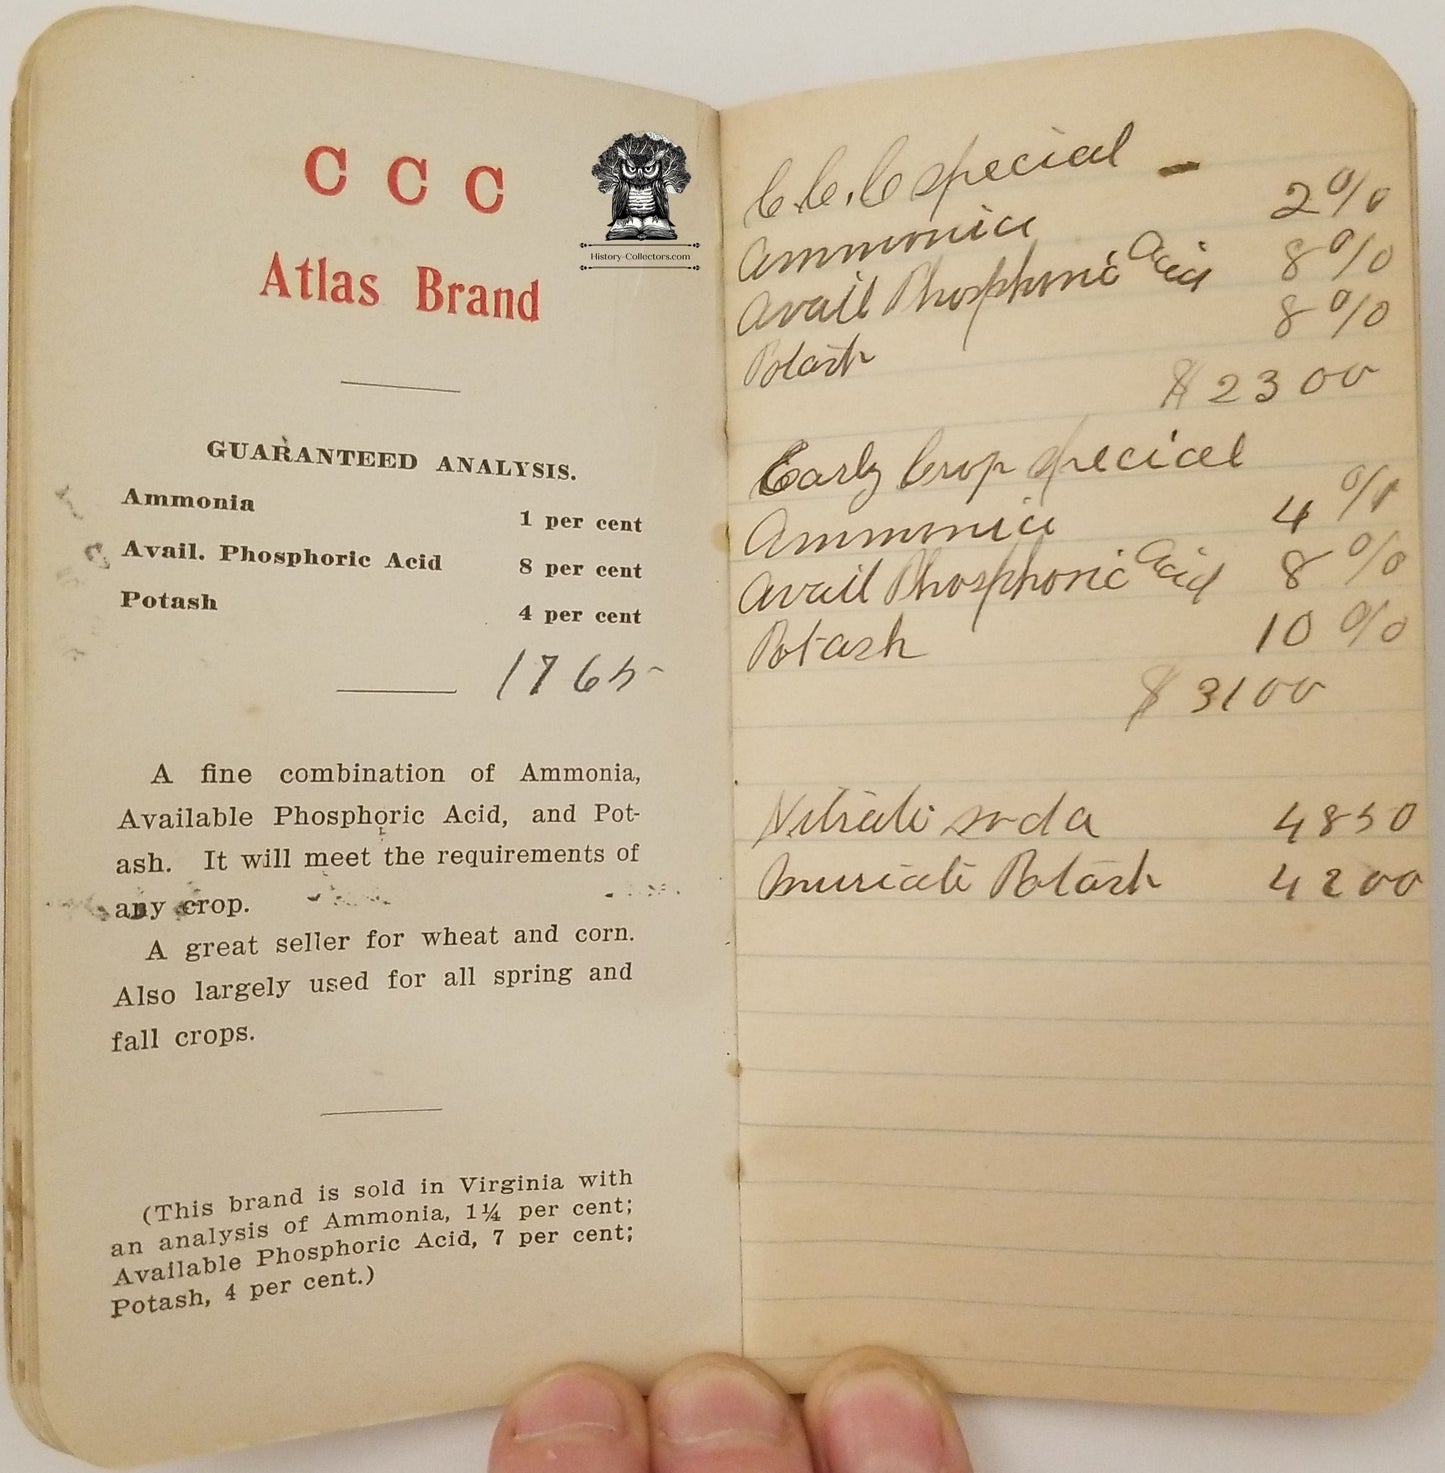 C C C
Atlas Brand
History-Collectors.com
GUARANTEED ANALYSIS.
Ammonia 1 per cent
Avail. Phosphoric Acid 8 per cent
Potash 4 per cent
1765
A fine combination of Ammonia,
Available Phosphoric Acid, and Pot-
ash. It will meet the requirements of
any crop.
A great seller for wheat and corn.
Also largely used for all spring and
fall crops.
(This brand is sold in Virginia with
an analysis of Ammonia, 1¼ per cent;
Available Phosphoric Acid, 7 per cent;
Potash, 4 per cent.)
C.C.C special -
Ammonia 2%
Avail Phosphoric Acid 8%
Potash 8%
$ 23 00
Early Crop Special
Ammonia 4%
Avail Phosphoric Acid 8%
Potash 10%
$ 31 00
Nitrate soda 48 50
Muriate Potash 42 00